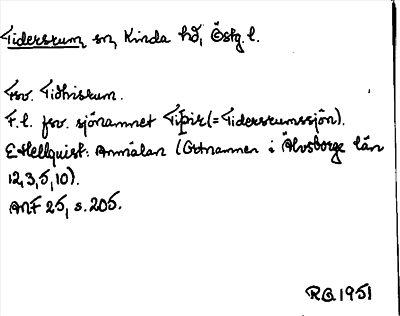 Tidersrum, sn, Kinda hd, Östg. l.
Fsv. Tidhrisrum.
F.l. fsv. sjönamnet Tiþir (= Tidersrumssjön).
E Hellquist: Anmälan (Ortnamnen i Älvsborgs län
12,3,5,10).
ANF 25, s. 205.
R Q 1951